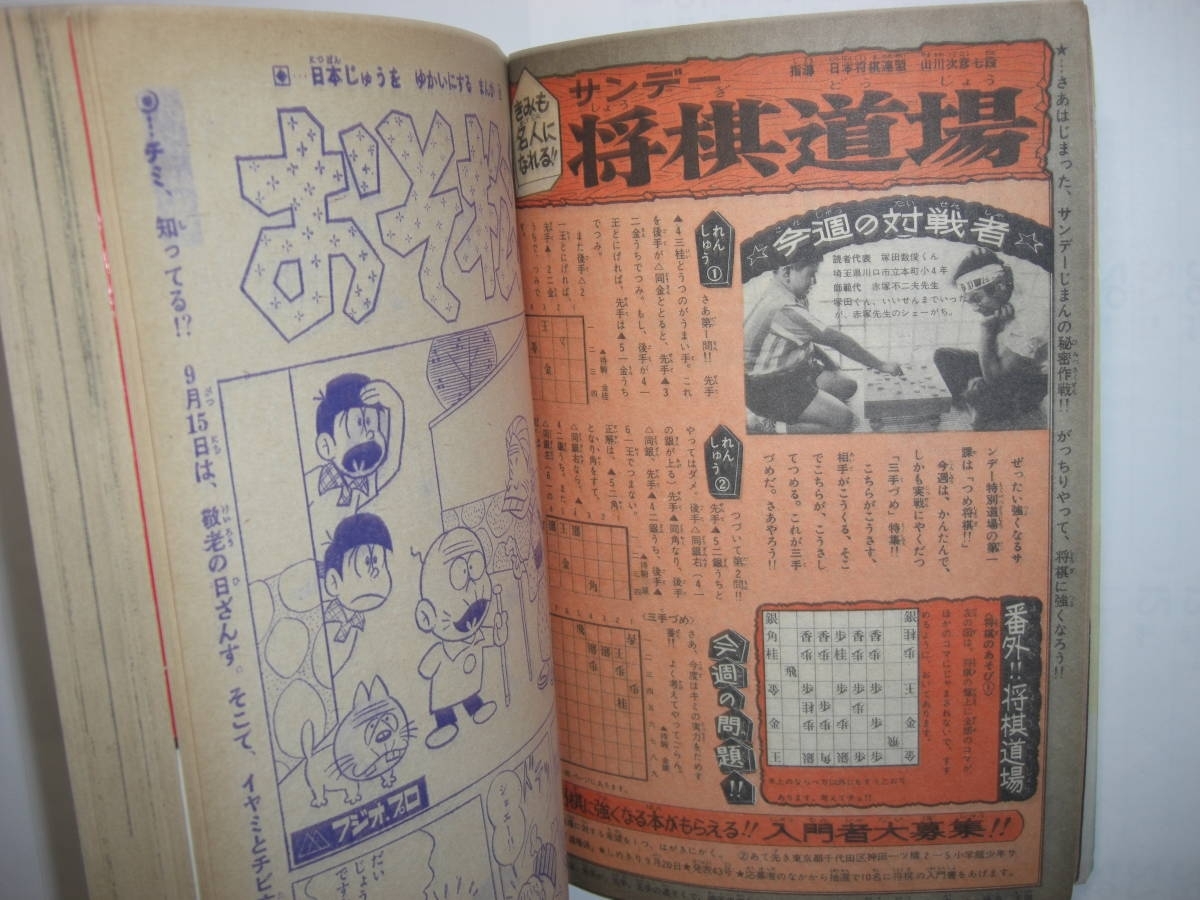 ★…さあはじまった、サンデーじまんの秘密作戦!! がっちりやって、将棋に強くなろう!!
指導 日本将棋連盟 山川次彦七段
きみも
名人に
なれる!!
サンデー
将棋道場
☆今週の対戦者☆
読者代表 塚田数俊くん
埼玉県川口市立本町小4年
師範代 赤塚不二夫先生
塚田くん、いいせんまでいった
が、赤塚先生のシェーがち。
ぜったい強くなるサ
ンデー特別道場の第一
課は「つめ将棋!!」
今週は、かんたんで、
しかも実戦にやくだつ
「三手づめ」特集!!
こちらがこうさす、
相手がこうくる、そこ
でこちらが、こうさし
てつめる。これが三手
づめだ。さあやろう!!
れんしゅう①
さあ第1問!! 先手
▲4三桂とうつのがうまい手。これ
を後手が△同金ととると、先手▲3
二金うちでつみ。もし、後手が4一
王とにげれば、先手は▲5一金うち
でつみ。
また後手△2
一王とにげれば、
先手▲2二金
うちで、つみで
れんしゅう②
つづいて第2問!!
先手▲5二銀うちと
やってはダメ。後手△同銀右(4一
の銀が上る)先手▲同角なり、後手
△同銀、先手▲4二銀うち、後手▲
6一王でつまない。
正解は、▲5二角
といり角をすて、
△同銀右なら、▲
4二銀うち、また
△同銀左(6一の
〈三手づめ〉
今週の問題!!
さあ、今度はキミの実力をためす
番!! よく考えてやってごらん。
番外!!将棋道場
(将棋のあそび①)
左の図は、将棋の盤上に全部のコマが、
ほかのコマにじゃまされないで、すす
めるように、おいてあります。
※上のならべ方以外にもまだとおり
あります。考えてチョ!!
将棋に強くなる本がもらえる!! 入門者大募集!!
1つ、はがきにかく。 ②あて先き東京都千代田区神田一ツ橋2-5小学館少年サ
★しめきり9月20日★発表43号 ★応募者のなかから抽選で10名に将棋の入門書をあげます。
日本じゅうを ゆかいにする まんが
おそ松
◉…チミ、知ってる!? 9月15日は、敬老の日ざんす。そこで、イヤミとチビ太
フジオ・プロ
シェー!!
だい
じょう
です